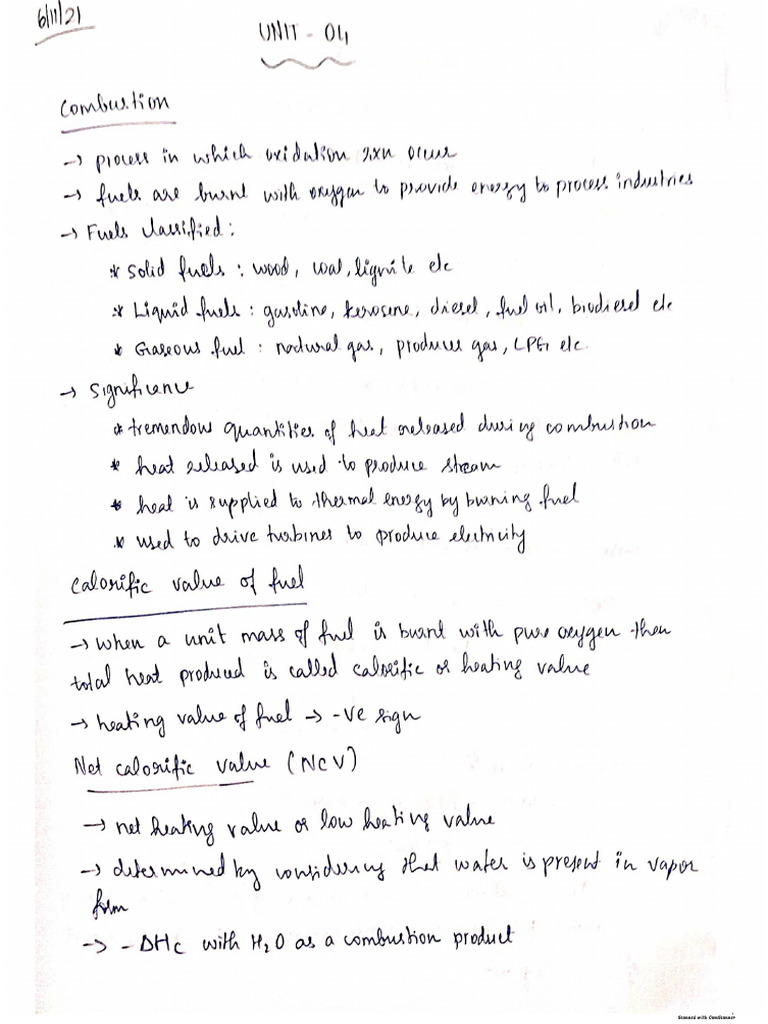 6/11/21
UNIT - 04
Combustion
→ process in which oxidation rxn occur
→ fuels are burnt with oxygen to provide energy to process industries
→ Fuels classified :
* Solid fuels : wood, coal, lignite etc
* Liquid fuels : gasoline, kerosene, diesel, fuel oil, biodiesel etc
* Gaseous fuel : natural gas, producer gas, LPG etc.
→ Significance
* tremendous quantities of heat released during combustion
* heat released is used to produce stream
* heat is supplied to thermal energy by burning fuel
* used to drive turbines to produce electricity
Calorific value of fuel
→ when a unit mass of fuel is burnt with pure oxygen then
total heat produced is called calorific or heating value
→ heating value of fuel → -ve sign
Net calorific value (NCV)
→ net heating value or low heating value
→ determined by considering that water is present in vapor
form
→ - ΔHc with H2O as a combustion product
Scanned with CamScanner